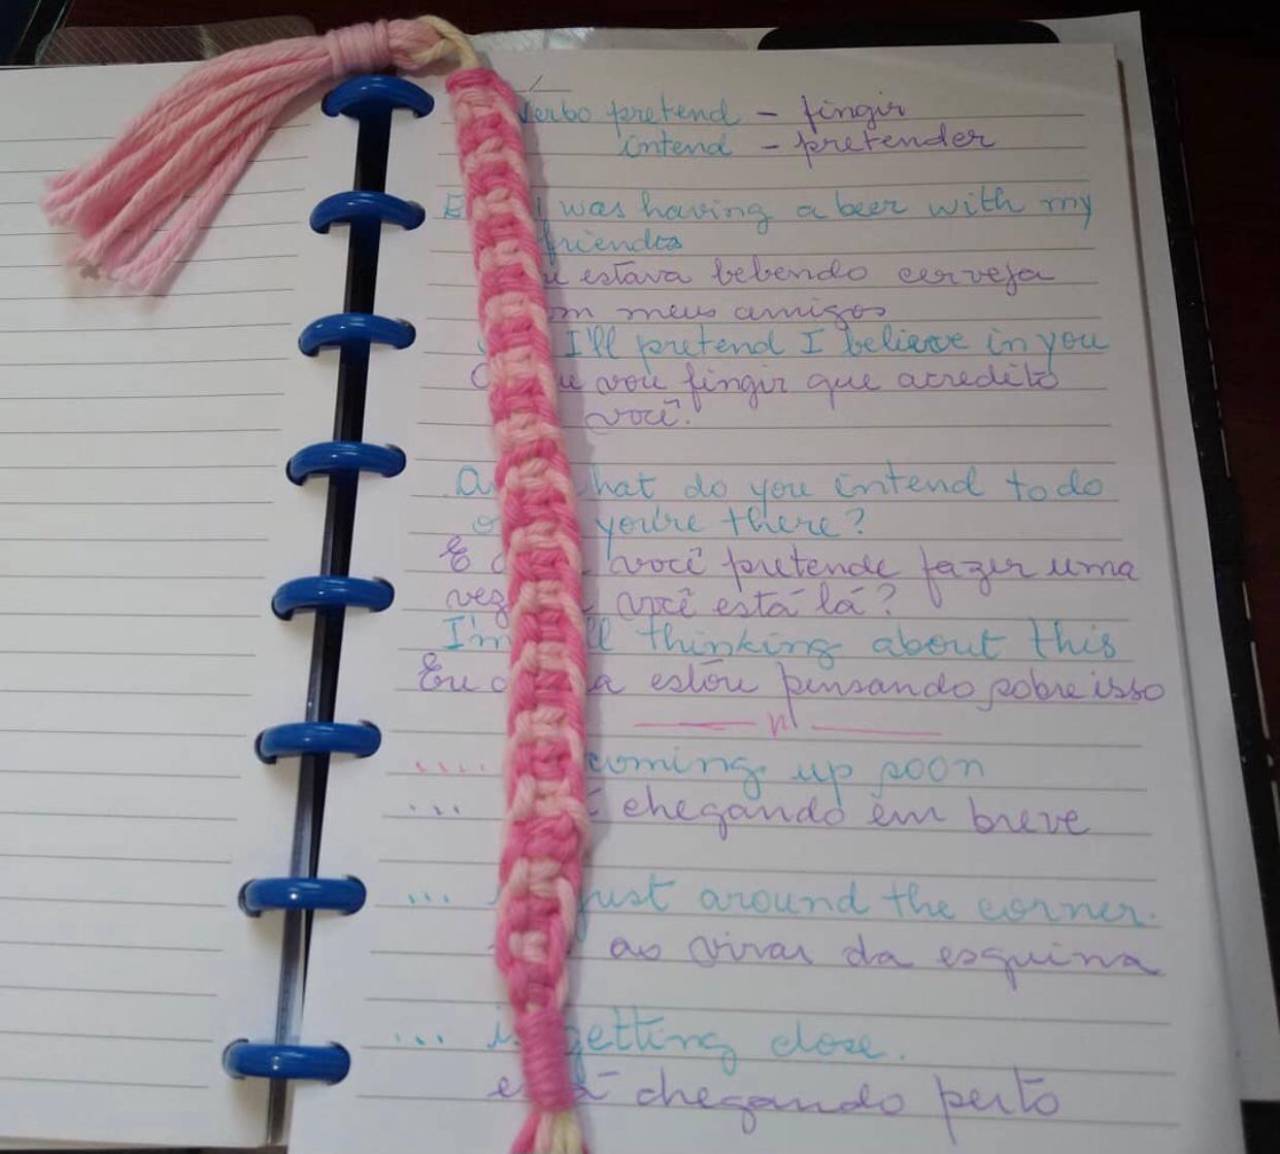 verbo pretend - fingir
intend - pretender
I was having a beer with my
friends
estava bebendo cerveja
meus amigos
I'll pretend I believe in you
vou fingir que acredito
você.
do you intend to do
you're there?
E você pretende fazer uma
vez você está lá?
I'm thinking about this
Eu estou pensando sobre isso
.... coming up soon
... chegando em breve
... just around the corner.
ao virar da esquina
... is getting close.
está chegando perto